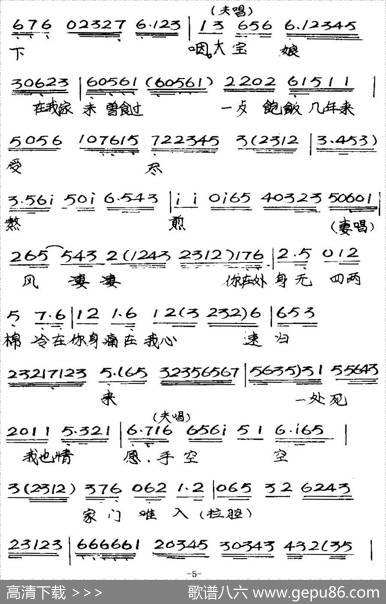 676 02327 6.123 | 13 656 6.12345
(夫唱)
下 咽,大宝 娘
30623 | 60561 (60561) | 2202 61511 |
在我家 来 曾食过 一歺 飽飯 几年来
5056 107615 722345 3(2312 | 3.453)
受 尽
3.56i 50i 6.543 | i i 0i65 40323 50601 |
熬 煎 (妻唱)
265 543 2(1243 2312)176 | 2.5 012
风 凄凄 你在外 身无 四两
5 7.6 | 12 1.6 12(3 232)6 | 653
棉 冷在你身痛在我心 速归
23217123 5.(65 32356567 | 5635)31 55643
来 一处死
2011 5.321 | 6.716 656i 51 6.i65 |
(夫唱)
我也情 愿.手空 空
3(2312) 376 062 1.2 | 065 32 6243
家门 难入(拉腔)
23123 | 666661 20345 30343 432(35 |
-5-
高清下载 >>>
歌谱八六 www.gepu86.com